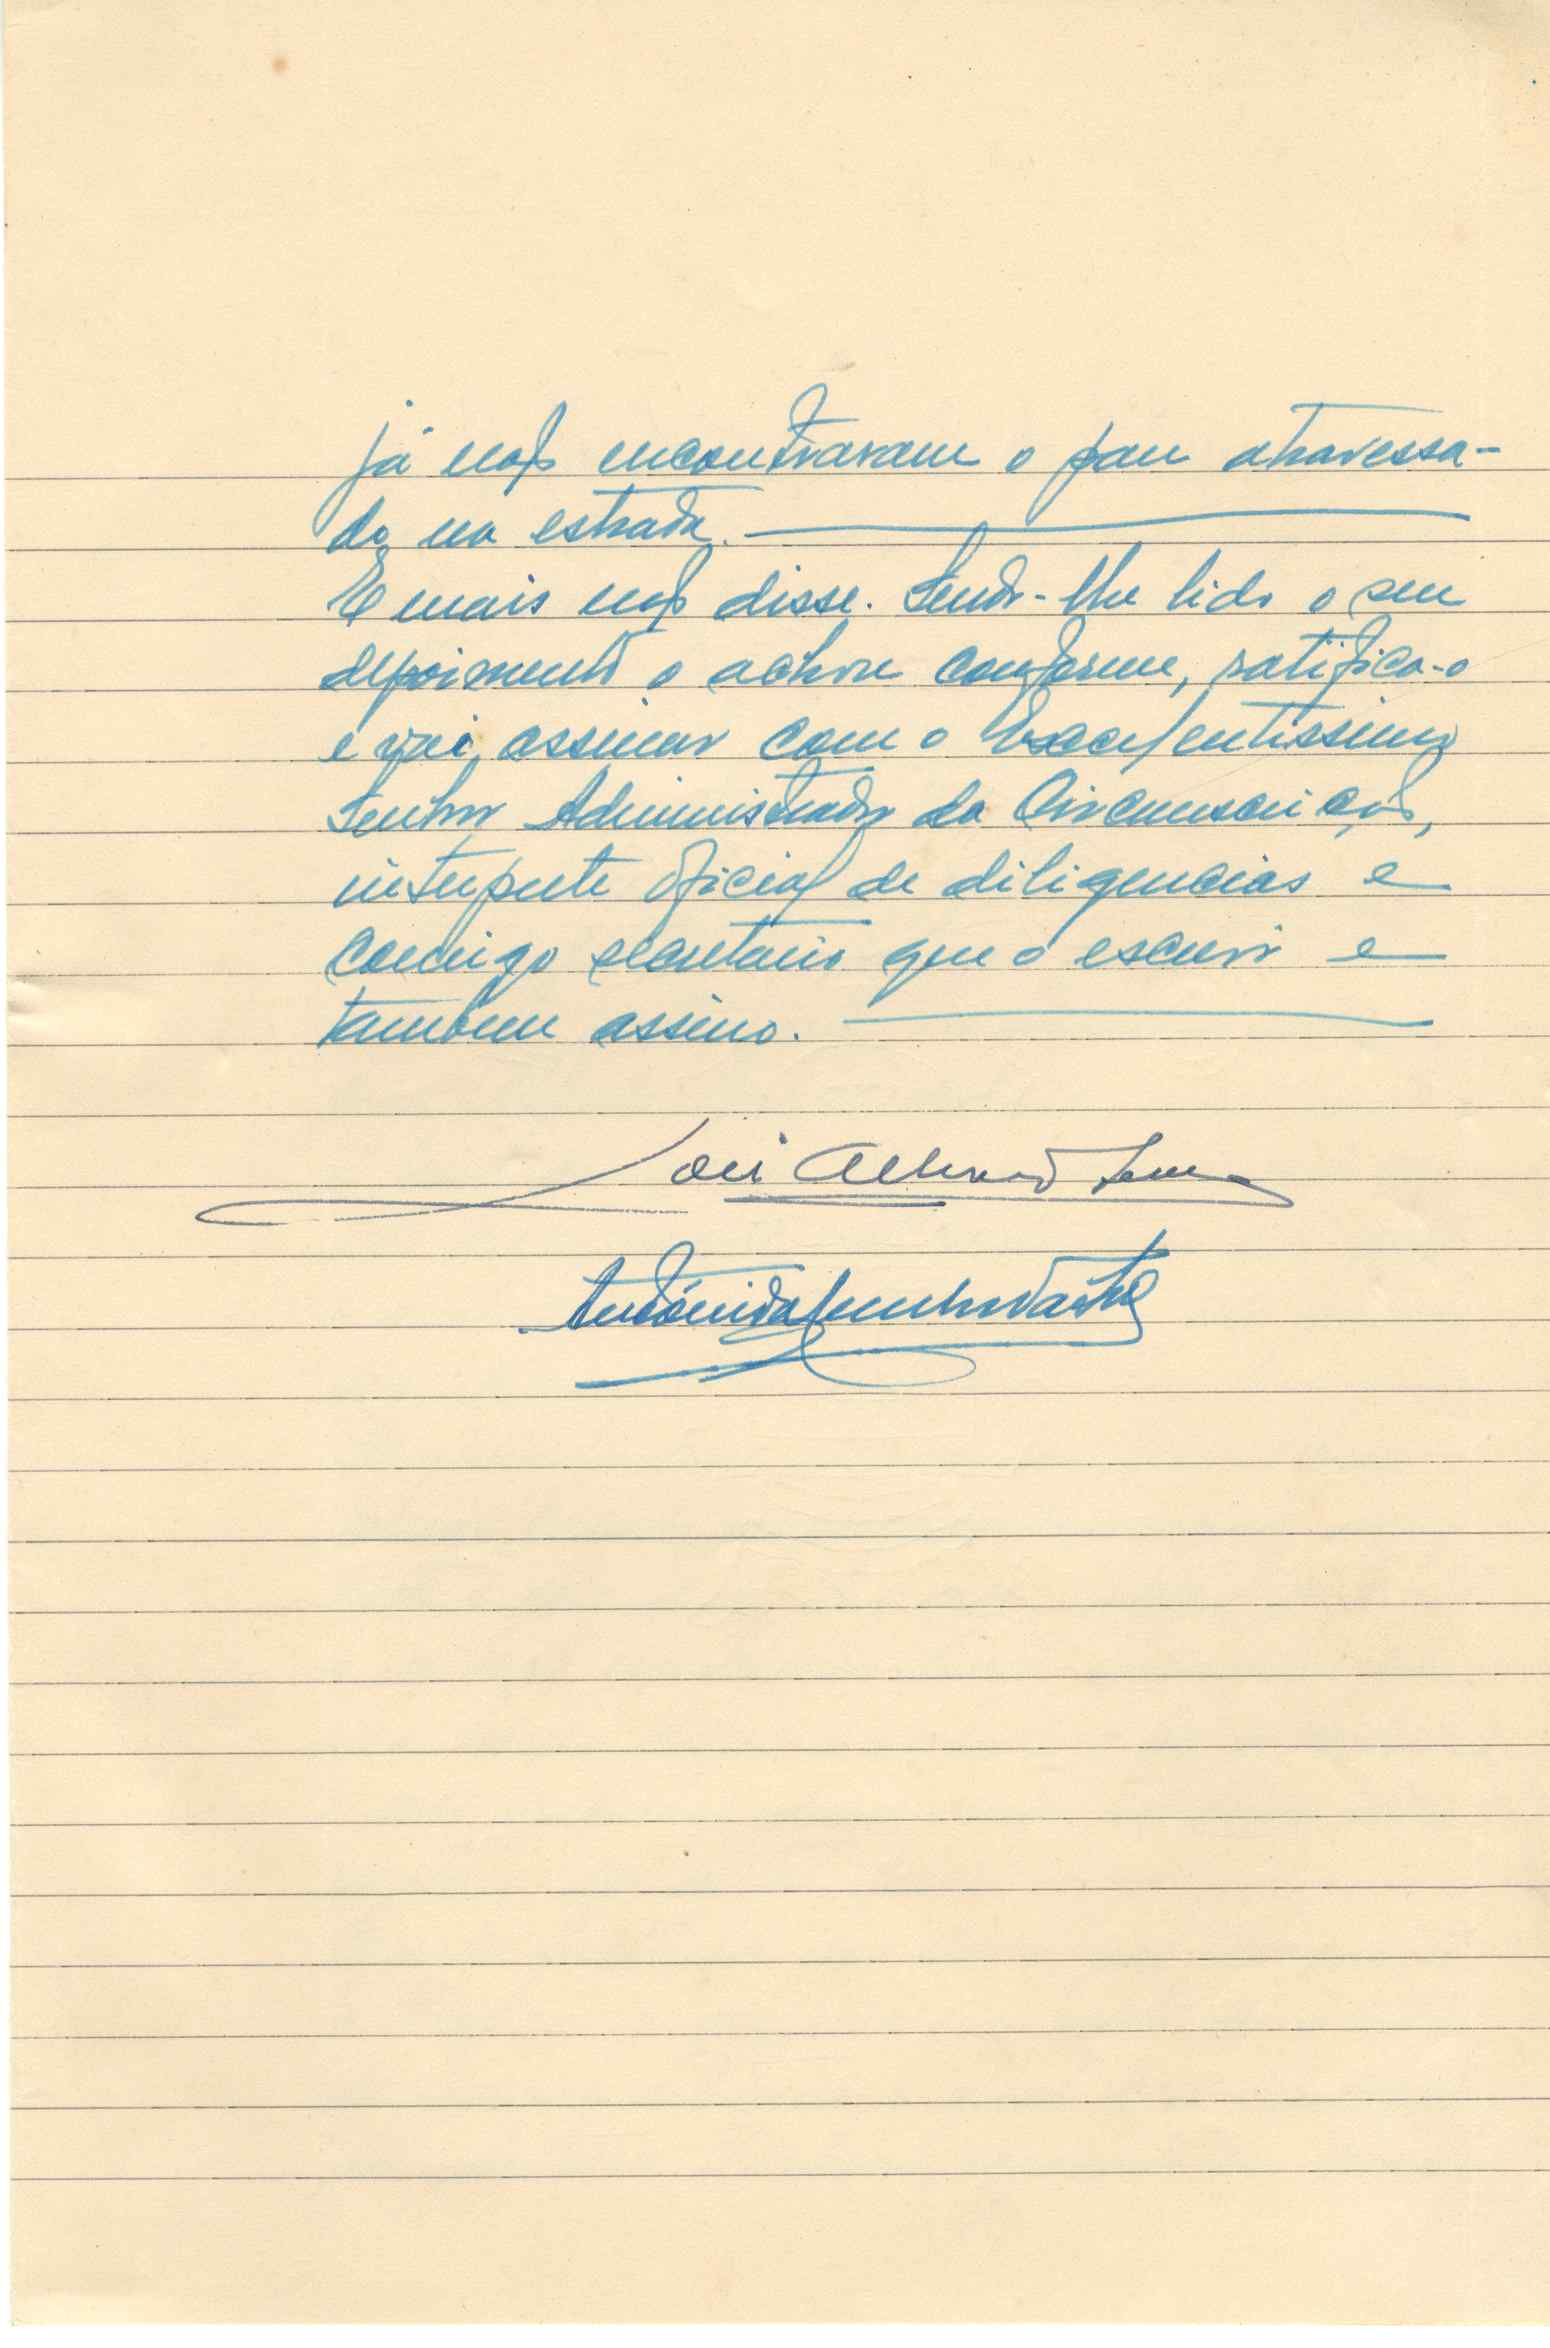 já não encontraram o pau atravessa-
do na estrada.
E mais não disse. Sendo-lhe lido o seu
depoimento o achou conforme, ratifica-o
e vai assinar com o Excelentissimo
Senhor Administrador da Circunscrição,
interprete oficial de diligencias e
comigo secretario que o escrevi e
tambem assino.
José
António da Cunha